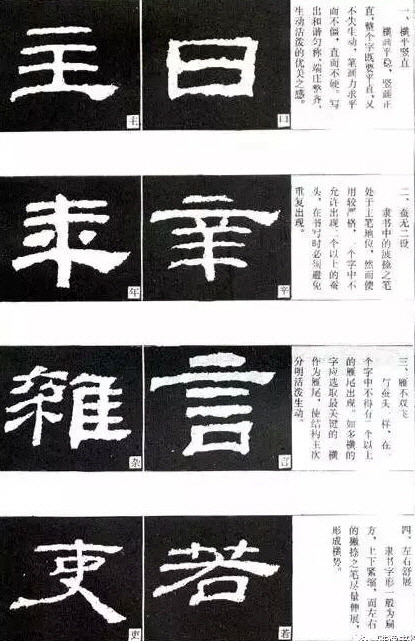 一、横平竖直
横画平稳,竖画正
直,整个字既要平直,又
不失生动,笔画力求平
而不僵,直而不硬。写
出和谐匀称、端庄整齐、
生动活泼的优美之感。
曰
主
主
二、蚕无二设
隶书中的波捺之笔
处于主笔地位,然而使
用较严格,一个字中不
允许出现二个以上的蚕
头,在书写时必须避免
重复出现。
辛
辛
年
年
三、雁不双飞
与蚕头一样,在一
个字中不得有一个以上
的雁尾出现。如多横的
字应选取最关键的一横
作为雁尾,使结构主次
分明活泼生动。
言
言
雜
杂
四、左右舒展
隶书字形一般为扁
方,上下紧缩,而左右
的撇捺之笔尽量伸展,
形成横势。
若
若
吏
吏